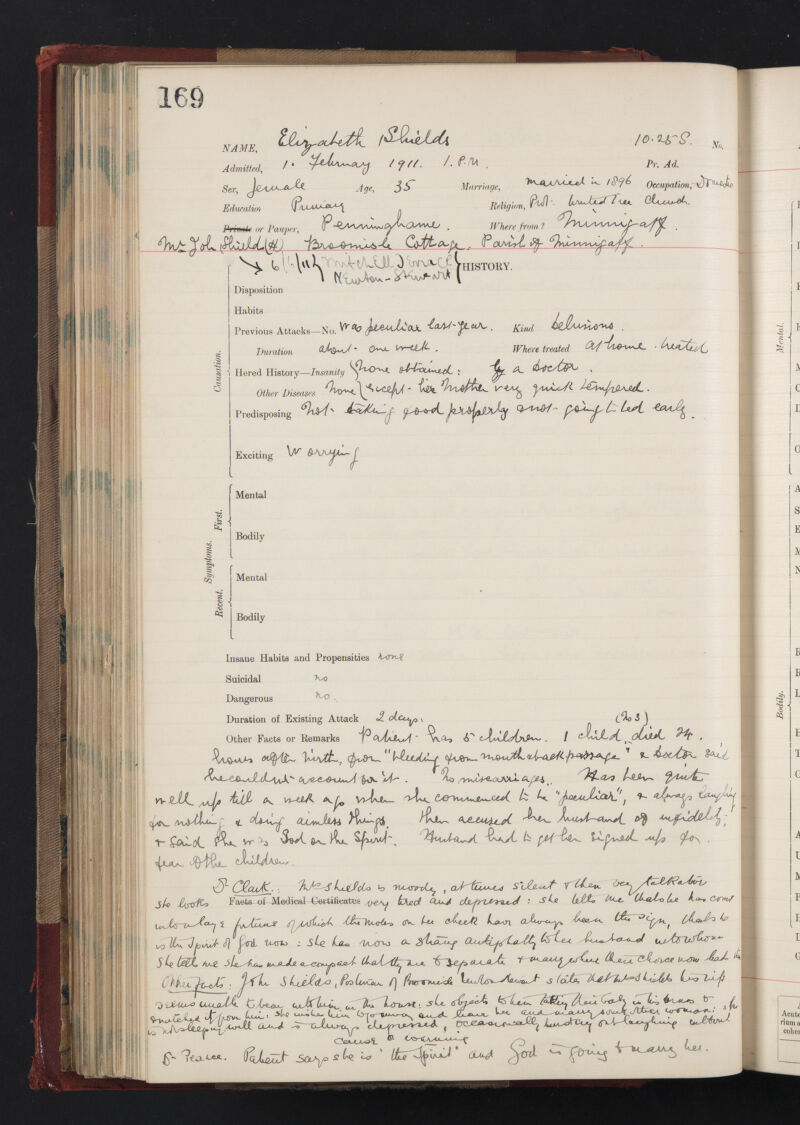 169
NAME, Elizabeth Shields 10.25 S. No.
Admitted, 1. February 1911. 1. P.M. Pr. Ad.
Sex, female Age, 35 Marriage, married in 1896 Occupation, Domestic
Education Primary Religion, Prot: United Free Church.
Private or Pauper, Penninghame. Where from? Minnigaff.
Mr John Shield (H) Broomisle Cottage. Parish of Minnigaff.
6/6/11 Mitchell Terrace HISTORY.
Newton-Stewart
Disposition
Habits
Previous Attacks—No. Was peculiar last year. Kind Delusions.
Duration about one week. Where treated At home treated
Hered History—Insanity None obtained: by a Doctor.
Other Diseases None except her Mother very quick tempered.
Predisposing Not taking food properly & not going to bed early.
Exciting Worrying
Causation.
Mental
Bodily
First.
Symptoms.
Mental
Bodily
Recent.
Insane Habits and Propensities none
Suicidal no
Dangerous no.
Duration of Existing Attack 2 days. (No 3)
Other Facts or Remarks Patient has 5 children. 1 child died 24.
hours after birth, from "bleeding from mouth & back passage" & Doctor said
he couldn't account for it. No miscarriages. Has been quite
well up till a week ago when she commenced to be "peculiar", & always laughing
for nothing & doing aimless things, then accused her husband of infidelity,
& said she was God or the Spirit. Husband had to get her signed up for
fear of the children.
Dr Clark.: Mrs Shields is moody, at times silent & then very talkative
she looks Facts of Medical Certificates very tired and depressed: she tells me that she has come
into a large fortune of which the moles on her cheek have always been the sign, that she
is the Spirit of God now: she has now a strong antipathy to her husband unto whom
she tells me she has made a compact that they are to separate & marry where their choice now lead
Other facts: John Shields, Postman of Broomisle Newton Stewart states that Mrs Shields his wife
seems unable to bear with him in the house: she objects to him taking their baby in his arms &
snatched it from him: she wishes him to go away and leave her and marry some other woman: she
is not sleeping well and is always depressed, occasionally bursting out laughing without
cause or warning
Dr Pearce. Patient says she is "the Spirit" and God is going to marry her.
Mental.
Bodily.